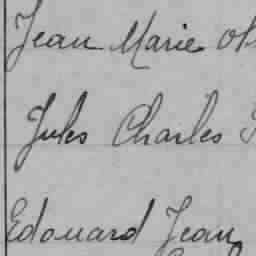 Jean Marie
Jules Charles
Edouard Jean